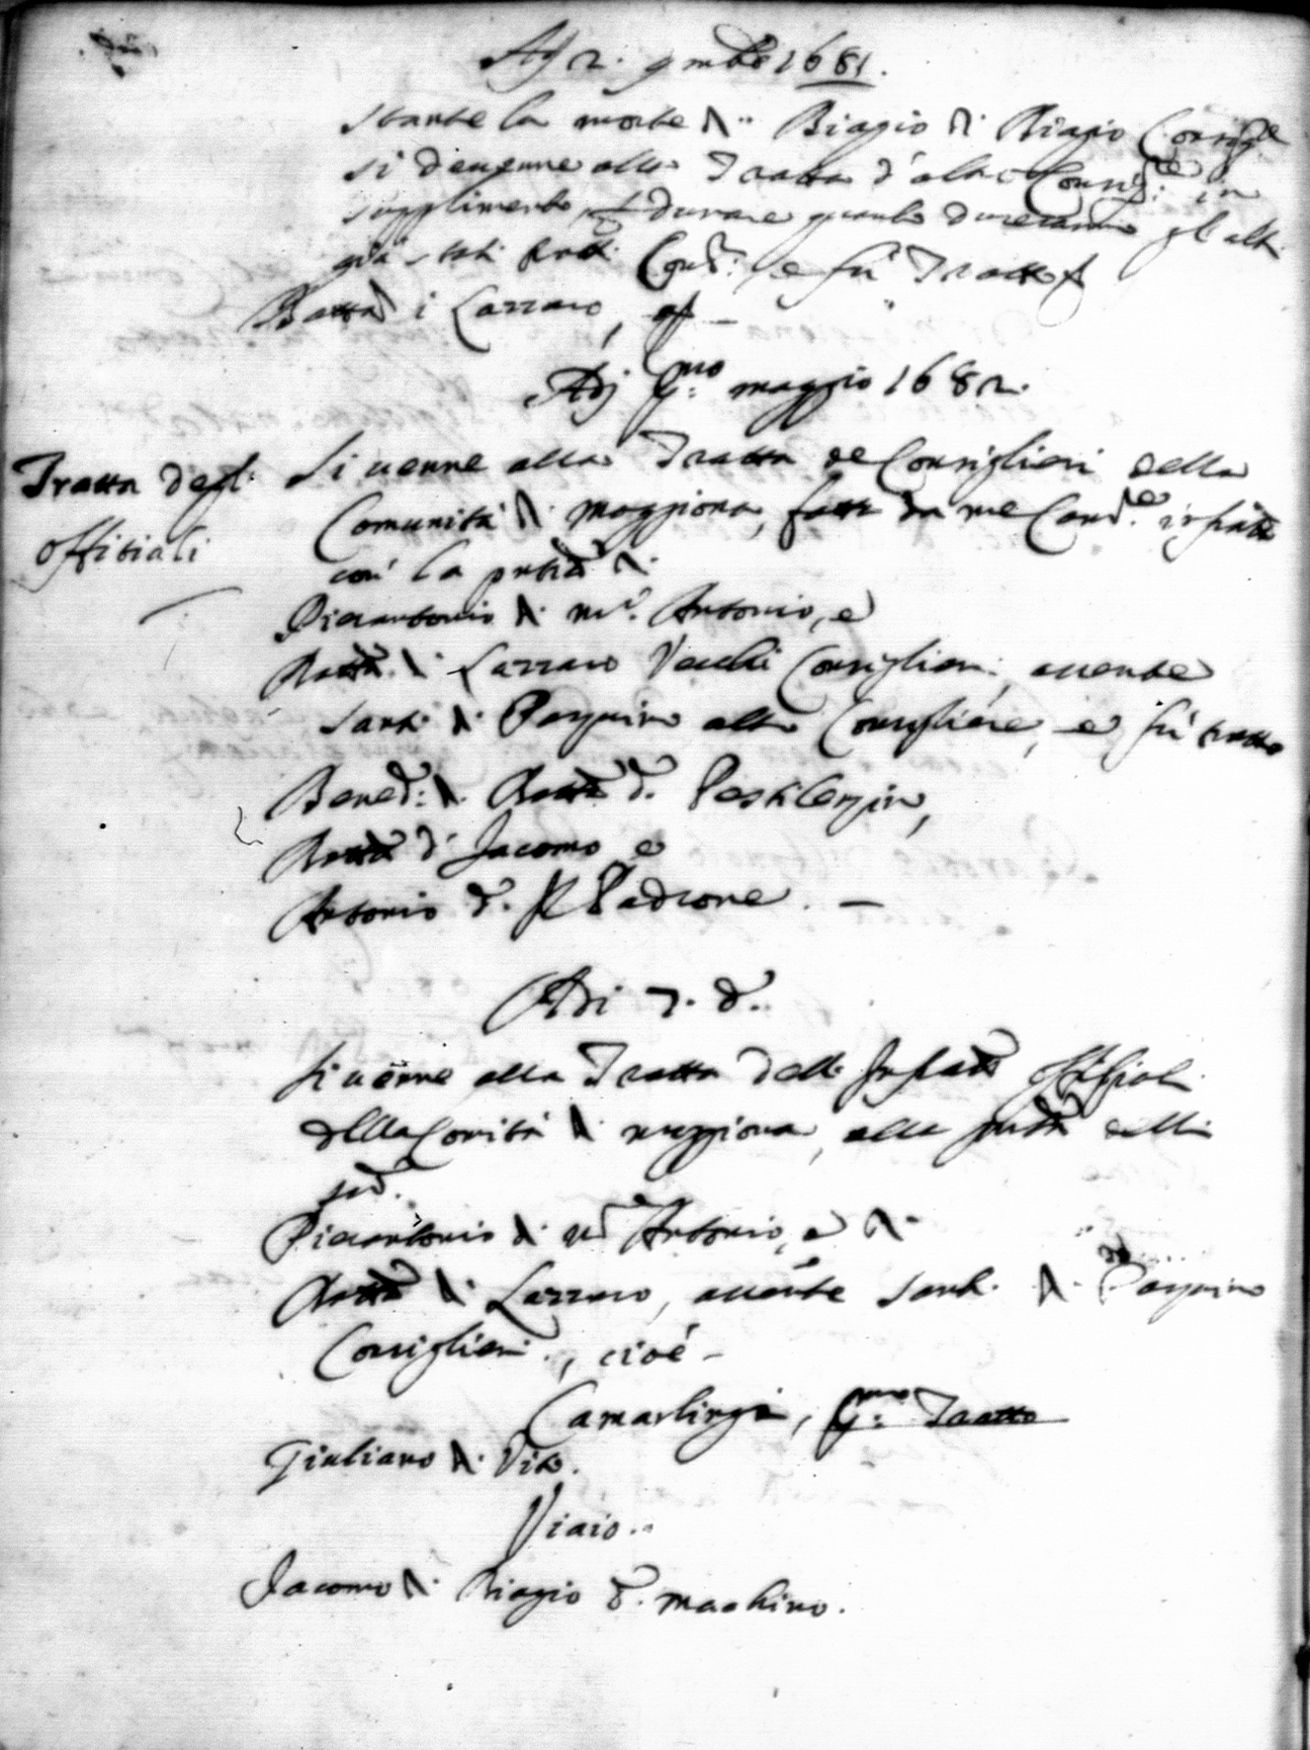 Adj 2. 9mbre 1681.
stante la morte di Biagio di Biagio Consigre
si deuenne alla Tratta d'altro Consigre: in
supplimento, durare quanto dureranno gl'altri
già stati tratti Consri: e fu Tratto
Batta di Lazzaro,
Adj Pmo: maggio 1682.
Tratta degl' offitiali
Si uenne alla Tratta de Consiglieri della
Comunità di moggiona, fatta da me Cancre: infratto
con la pntia di
Pierantonio di mro. Antonio, e
Batta. di Lazzaro Vecchi Consiglieri, auente
Santi di Pasquino altro Consigliere, e fu tratto
Bened: di Batta d.
Batta d' Jacomo e
Antonio d. Padrone. —
Adi 7. d.
Si uenne alla Tratta delli Infratti Offitiali
della Comità di moggiona, alla pntia delli
sud.
Pierantonio di mro Antonio, e di
Batta di Lazzaro, auente Santi di Pasquino
Consiglieri, cioè -
Camarlingo, Pmo: Tratto
Giuliano di Vito.
Viaio.
Jacomo di Biagio d. machino.